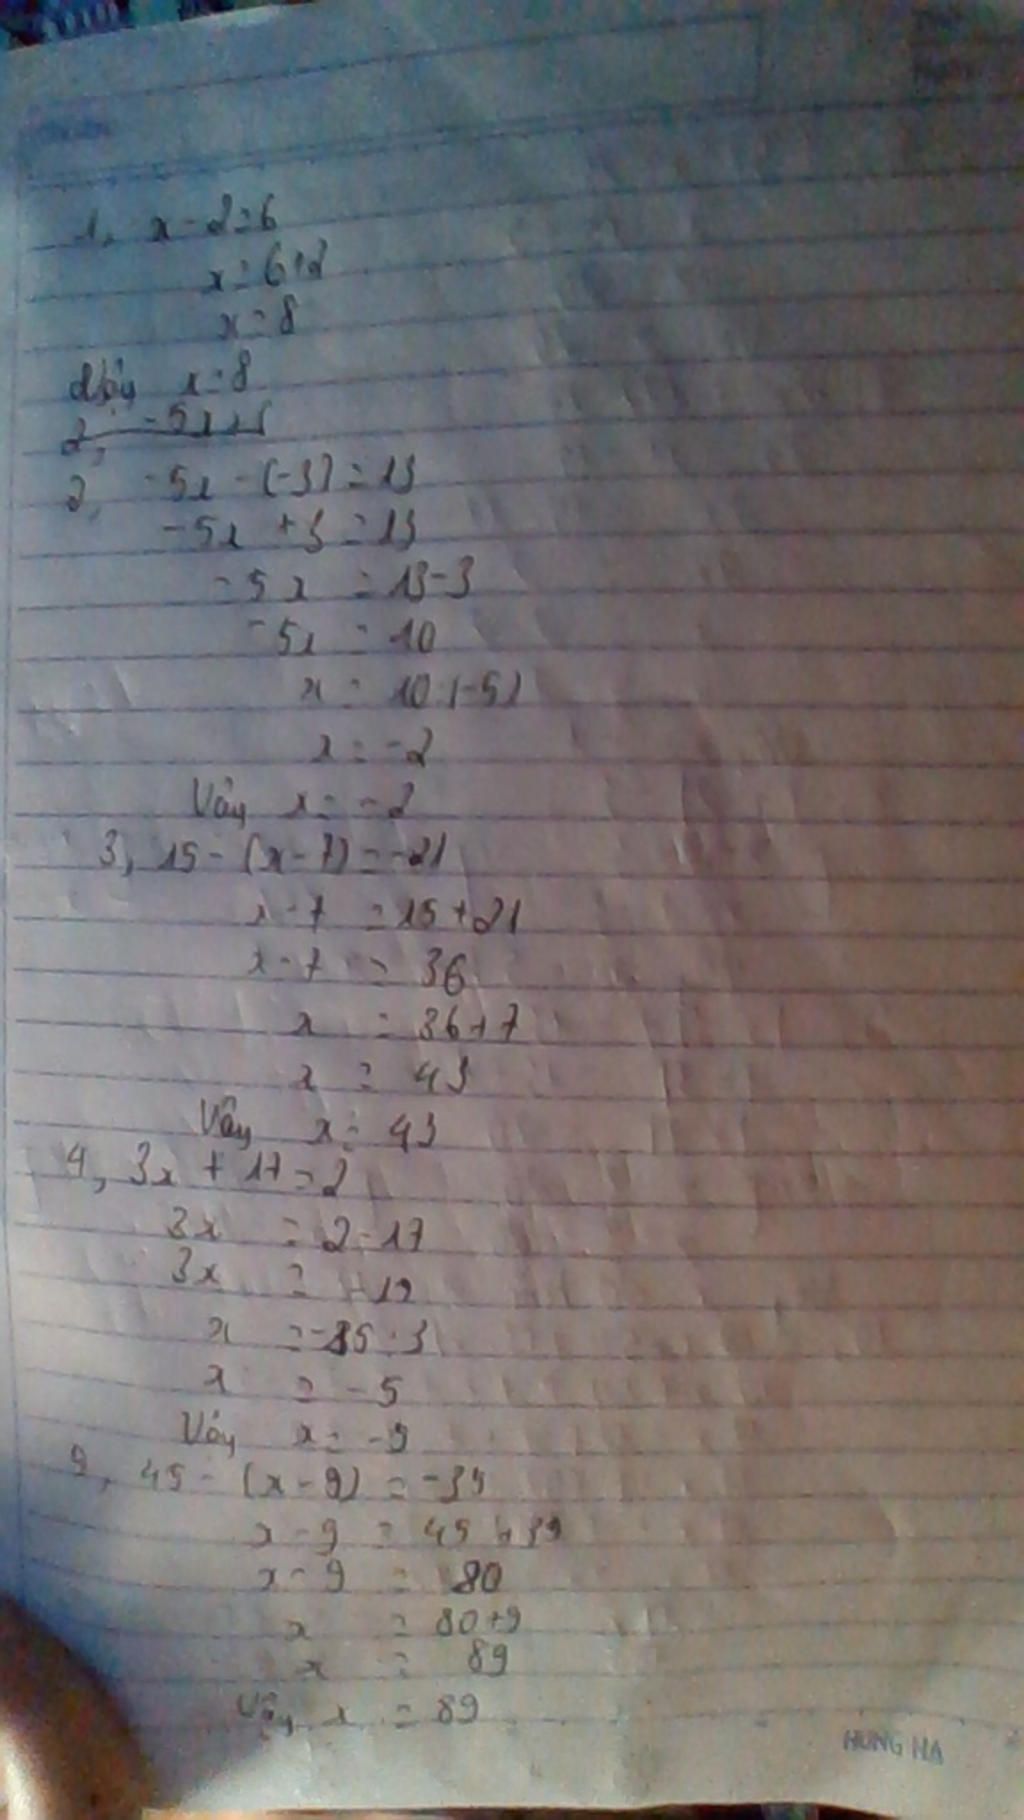 1, x - 2 = 6
x = 6 + 2
x = 8
Vậy x = 8
2,
2, -5x - (-3) = 13
-5x + 3 = 13
-5x = 13 - 3
-5x = 10
x = 10 : (-5)
x = -2
Vậy x = -2
3, 15 - (x - 7) = -21
x - 7 = 15 + 21
x - 7 = 36
x = 36 + 7
x = 43
Vậy x = 43
4, 3x + 17 = 2
3x = 2 - 17
3x = -15
x = -15 : 3
x = -5
Vậy x = -5
5, 45 - (x - 9) = -35
x - 9 = 45 + 35
x - 9 = 80
x = 80 + 9
x = 89
Vậy x = 89
HUNG HA